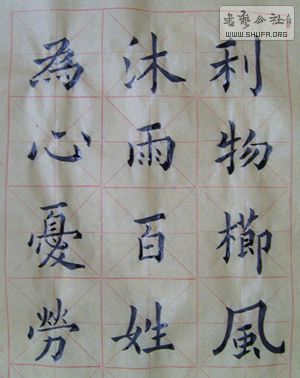 利物櫛風
沐雨百姓
為心憂勞
書藝公社
WWW.SHUFA.ORG